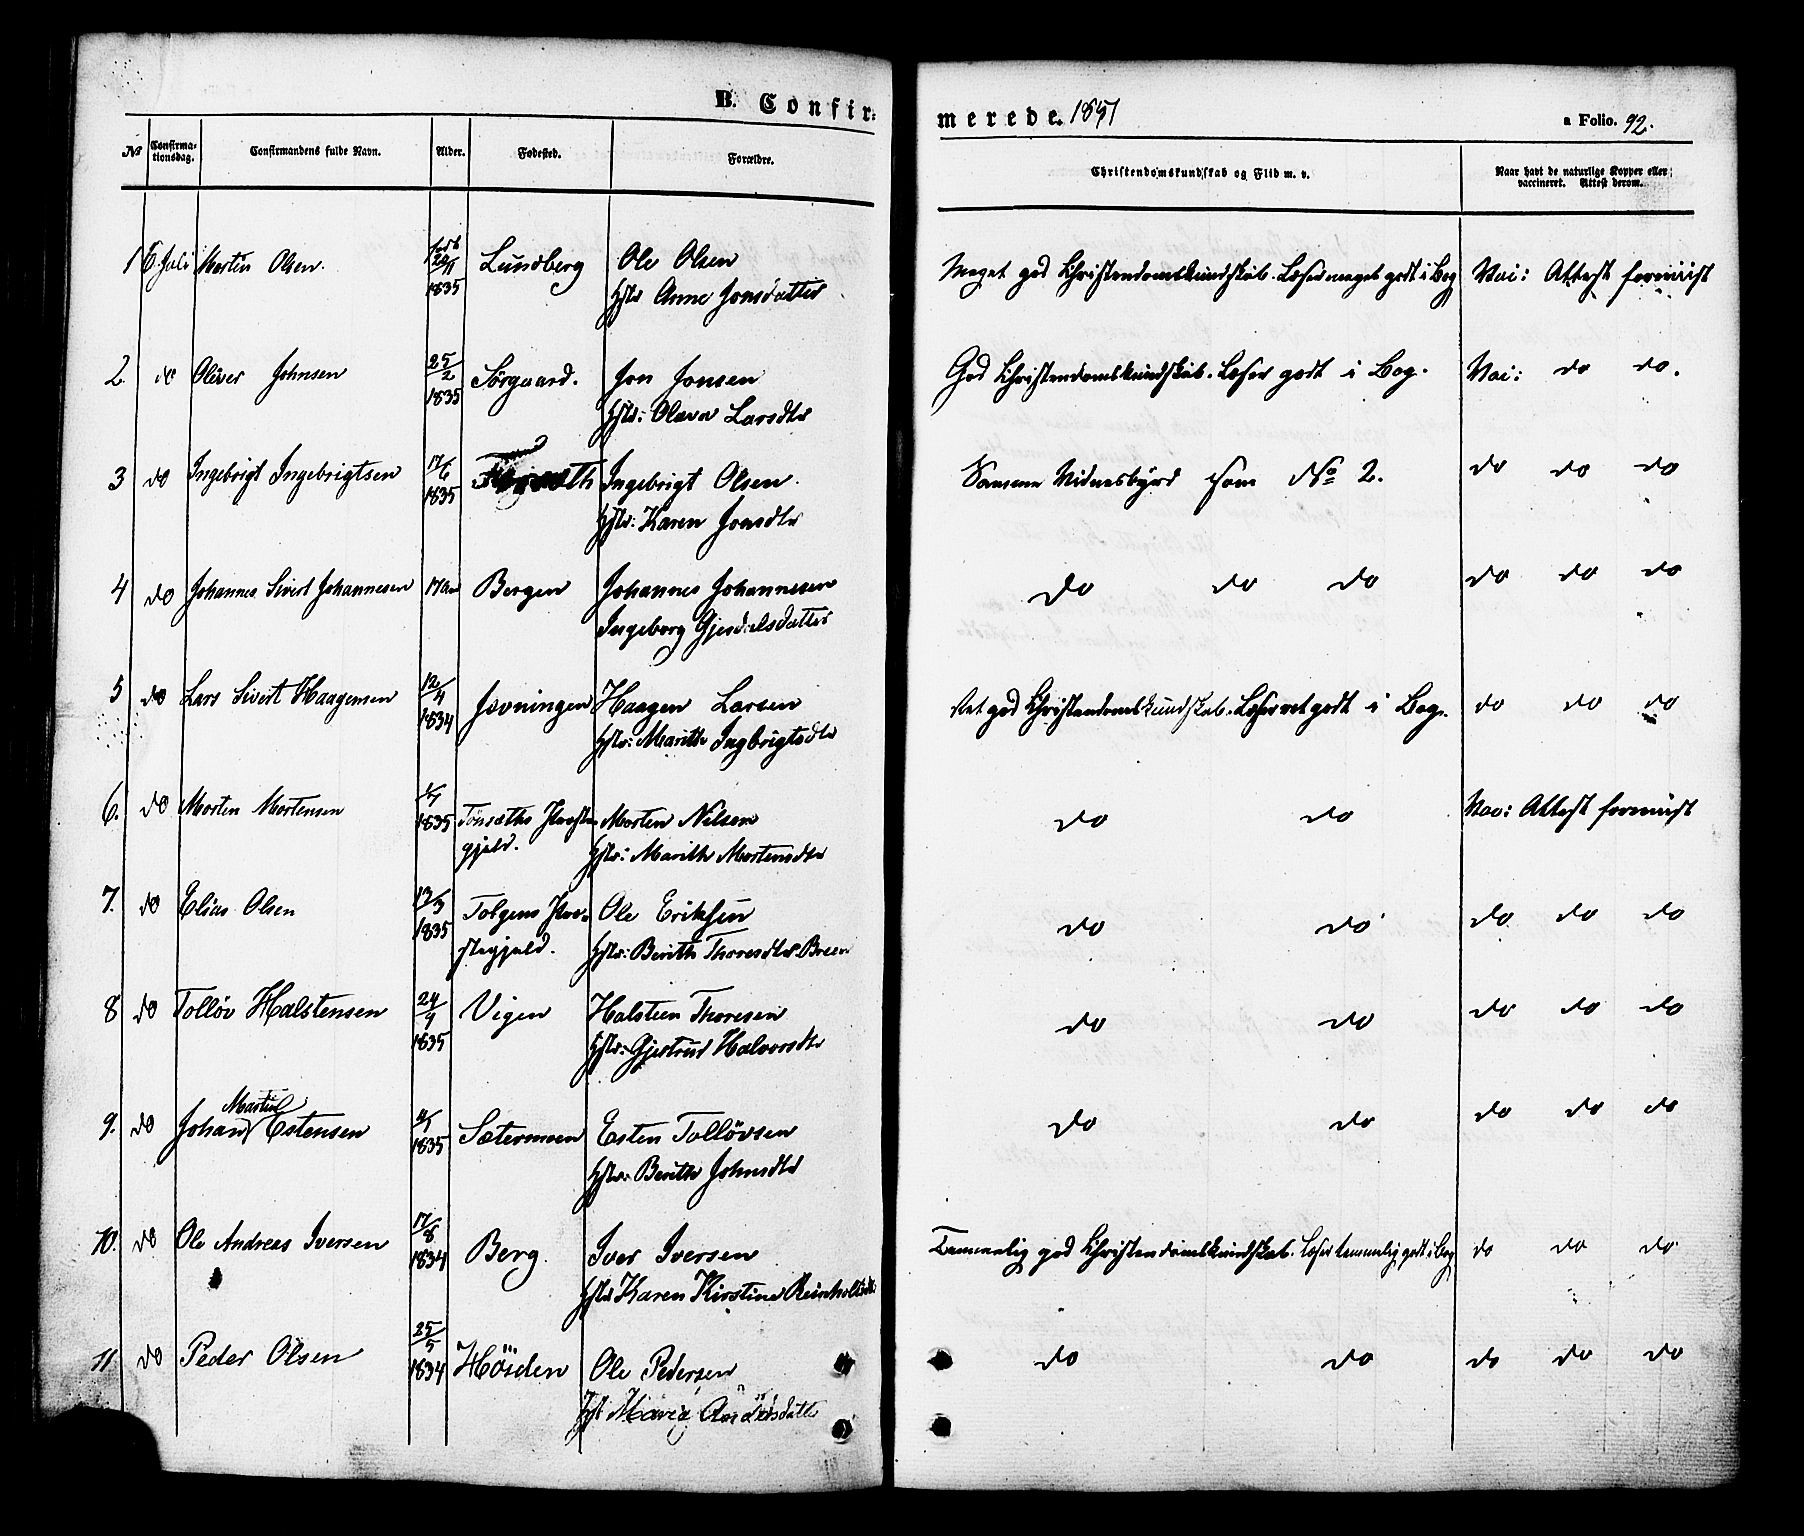 B. Confir-
merede. 1851
a Folio. 92.
№ Confirma-tionsdag. Confirmandens fulde Navn. Alder. Fødested. Forældre. Christendomskundskab og Flid m. v. Naar havt de naturlige Kopper eller vaccineret. Attest derom.
1 6. Juli Martin Olsen. født 20/11 1835 Lundberg Ole Olsen Meget god Christendomskundskab. Læser meget godt i Bog Vac: Attest foreviist
Hstr Anne Jonsdatter
2. do Oliver Johnsen 25/2 1835 Sørgaard. Jon Jonsen God Christendomskundskab. Læser godt i Bog. Vac: do do.
Hstr: Olava Larsdtr
3 do Ingebrigt Ingebrigtsen 17/6 1835 Ingebrigt Olsen. Samme Vidnesbyrd som No 2. do do do
Hstr: Karen Jonsdtr
4 do Johannes Sivert Johannesen 17 Aar Bergen Johannes Johannesen do do do do do do
Ingeborg Gjesdalsdatter
5 do Lars Sivert Haagensen 12/4 1834 Jævningen Haagen Larsen Ret god Christendomskundskab. Læser ret godt i Bog. do do do
Hstr: Marith Ingbrigtsdtr
6. do Morten Mortensen 1835 Tønsæths Præste- Morten Nilsen do do Vac: Attest foreviist
gjeld. Hstr: Marith Mortensdtr
7. do Elias Olsen 13/3 1835 Tolgens Præ- Ole Eriksen do do do do do
stegjeld. Hstr: Berith Thoresdtr Breen
8 do Tolløv Halstensen 24/9 1835 Vigen Halsteen Thoresen do do do do do
Hstr: Gjertrud Halvorsdtr
9. do Johan Martin Estensen 1835 Sætermoen Esten Tolløvsen do do do do do
Hstr: Berith Johnsdtr
10. do Ole Andreas Iversen 17/8 1834 Berg. Iver Iversen Temmelig god Christendomskundskab. Læser temmelig godt i Bog do do do
Hstr Karen Kirstine Reinholdsdtr
11. do Peder Olsen 25/5 1834 Høiden Ole Pedersen do do do do do
Hst Maria Andersdatter